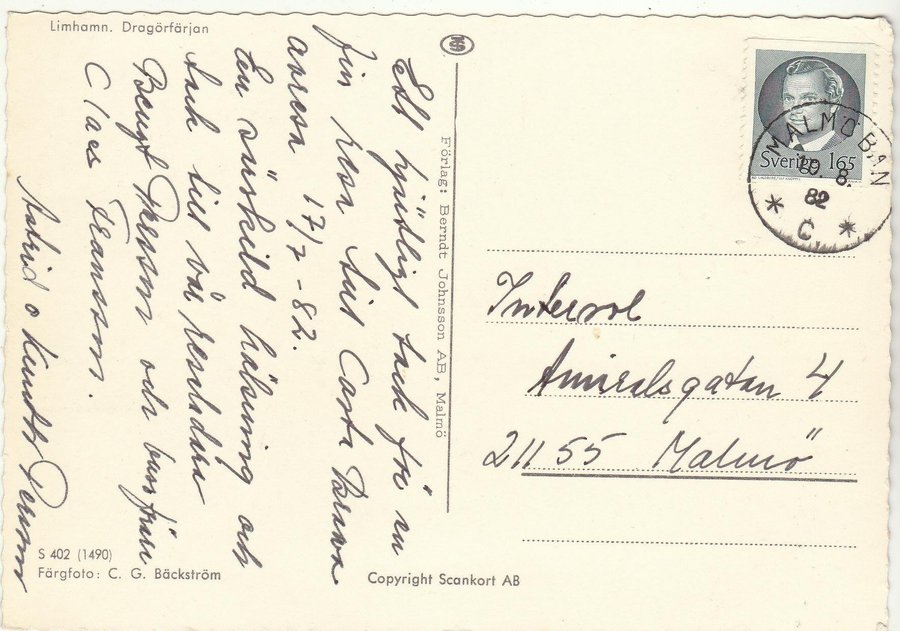 Limhamn. Dragörfärjan
Ett hjärtligt tack för en
fin resa Till Costa Brava
avresa 17/7-82.
En särskild hälsning och
tack till vår resledare
Bengt Persson och busschaufför
Claes Fransson.
Astrid o Kurt Persson
S 402 (1490)
Färgfoto: C. G. Bäckström
Förlag: Berndt Johnsson AB, Malmö
Copyright Scankort AB
Sverige 165
MALMÖ BAN
19. 8.
82
* C. *
Intersol
Amiralsgatan 4
211 55 Malmö